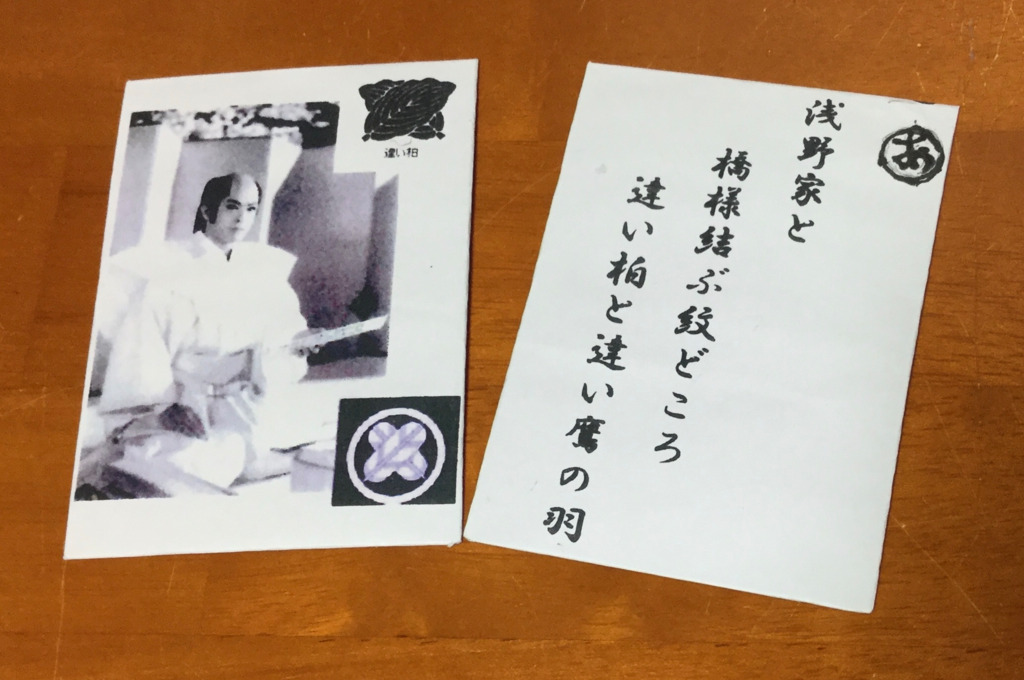 違い柏
あ
浅野家と
橋様結ぶ紋どころ
違い柏と違い鷹の羽